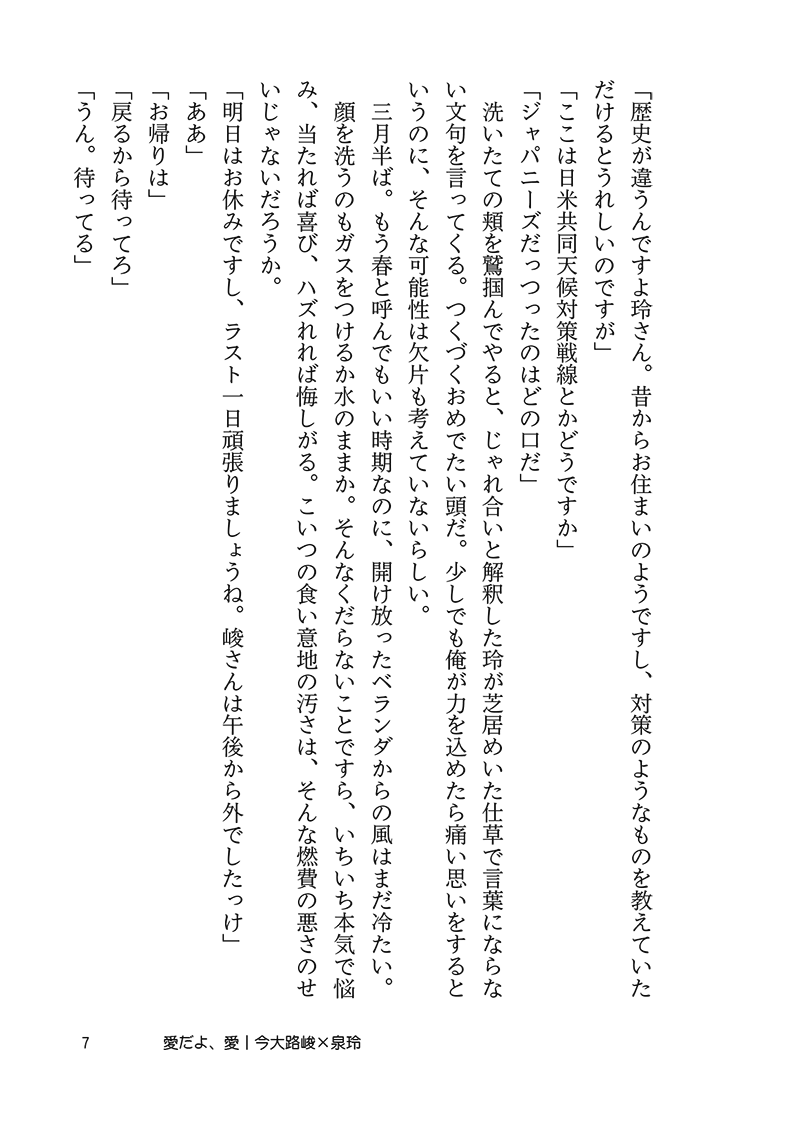 「歴史が違うんですよ玲さん。昔からお住まいのようですし、対策のようなものを教えていた
だけるとうれしいのですが」
「ここは日米共同天候対策戦線とかどうですか」
「ジャパニーズだっつったのはどの口だ」
　洗いたての頬を鷲掴んでやると、じゃれ合いと解釈した玲が芝居めいた仕草で言葉にならな
い文句を言ってくる。つくづくおめでたい頭だ。少しでも俺が力を込めたら痛い思いをすると
いうのに、そんな可能性は欠片も考えていないらしい。
　三月半ば。もう春と呼んでもいい時期なのに、開け放ったベランダからの風はまだ冷たい。
　顔を洗うのもガスをつけるか水のままか。そんなくだらないことですら、いちいち本気で悩
み、当たれば喜び、ハズれれば悔しがる。こいつの食い意地の汚さは、そんな燃費の悪さのせ
いじゃないだろうか。
「明日はお休みですし、ラスト一日頑張りましょうね。峻さんは午後から外でしたっけ」
「ああ」
「お帰りは」
「戻るから待ってろ」
「うん。待ってる」
7　愛だよ、愛｜今大路峻×泉玲